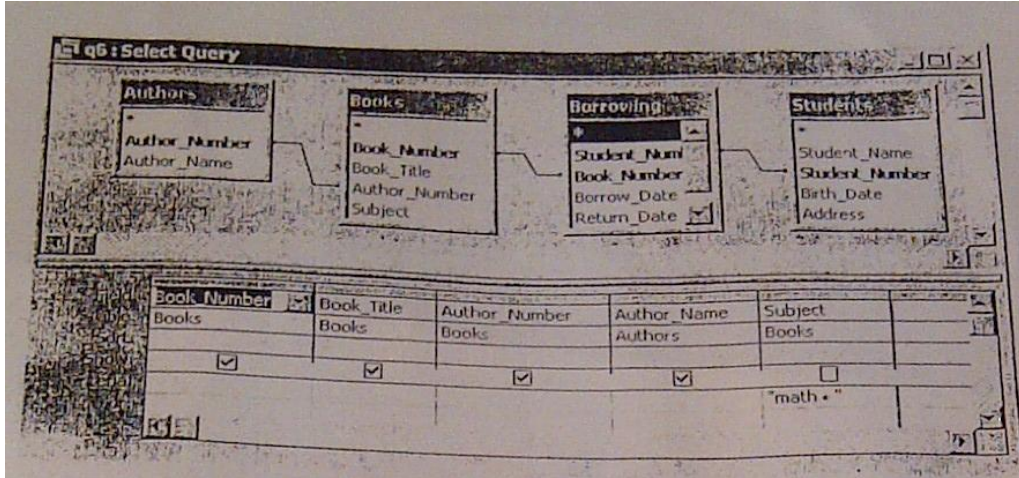 q6 : Select Query
Authors
*
Author_Number
Author_Name
Books
*
Book_Number
Book_Title
Author_Number
Subject
Borrowing
*
Student_Num
Book_Number
Borrow_Date
Return_Date
Students
*
Student_Name
Student_Number
Birth_Date
Address
Book_Number Book_Title Author_Number Author_Name Subject
Books Books Books Authors Books
Show:
"math * "